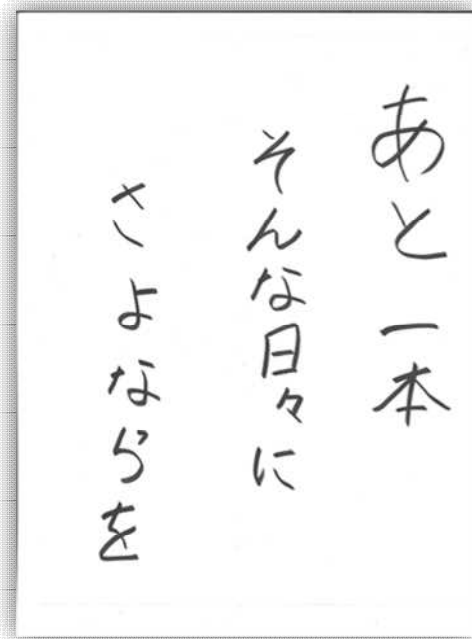 あと一本
そんな日々に
さよならを